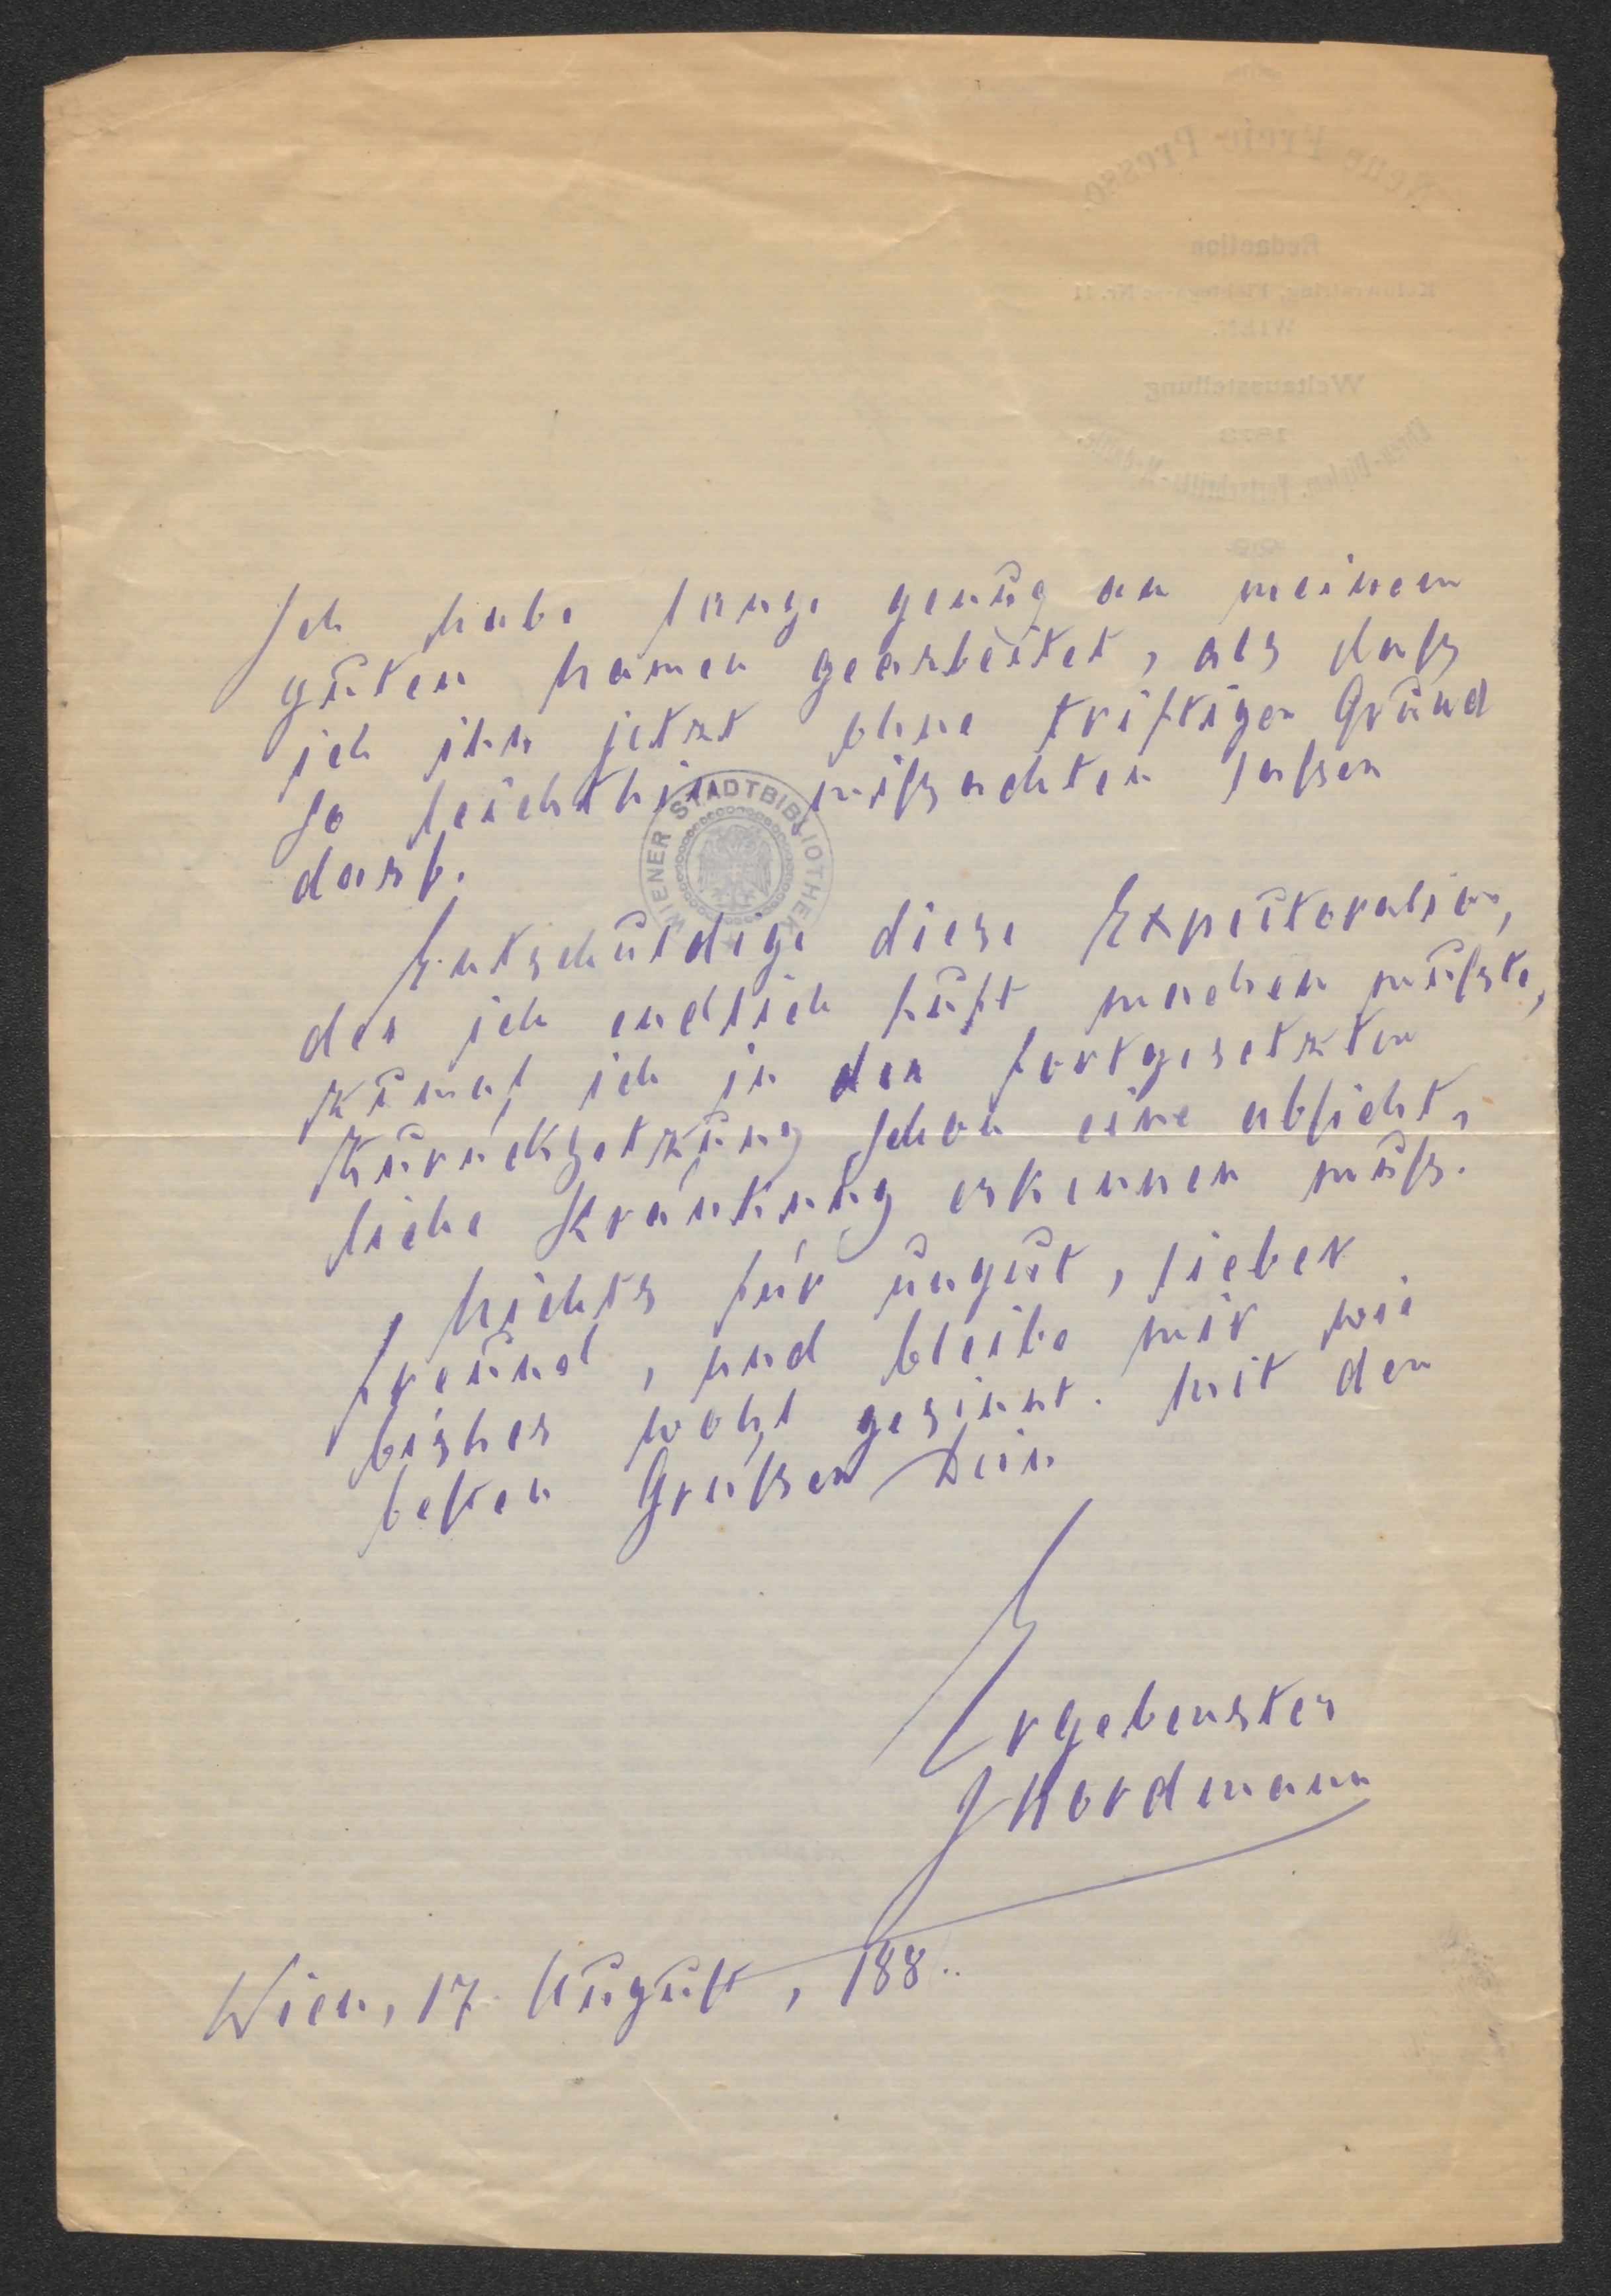 Neue Freie Presse.
Redaction
Kolowratring, Fichtegasse Nr. 11
WIEN.
Weltausstellung
1873
Ehren-Diplom. Fortschritts-Medaille.
Ich habe lange genug an meinem
guten Namen gearbeitet, als daß
ich ihn jetzt ohne triftigen Grund
so leichthin mißachten laßen
darf.
WIENER STADTBIBLIOTHEK
Entschuldige diese Expectoration,
der ich endlich Luft machen mußte,
zumal ich in der fortgesetzten
Zurücksetzung schon eine absicht,
liche Kränkung erkennen muß.
Nichts für ungut, lieber
Freund, und bleibe mir wie
bisher wohl gesinnt. Mit den
besten Grüßen Dein
Ergebenster
JNordmann
Wien, 17. August, 188..